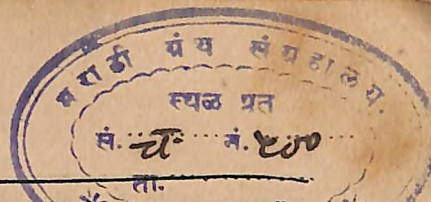 मराठी ग्रंथ संग्रहालय.
स्थळ प्रत
सं. च. नं. ५७०
ता.